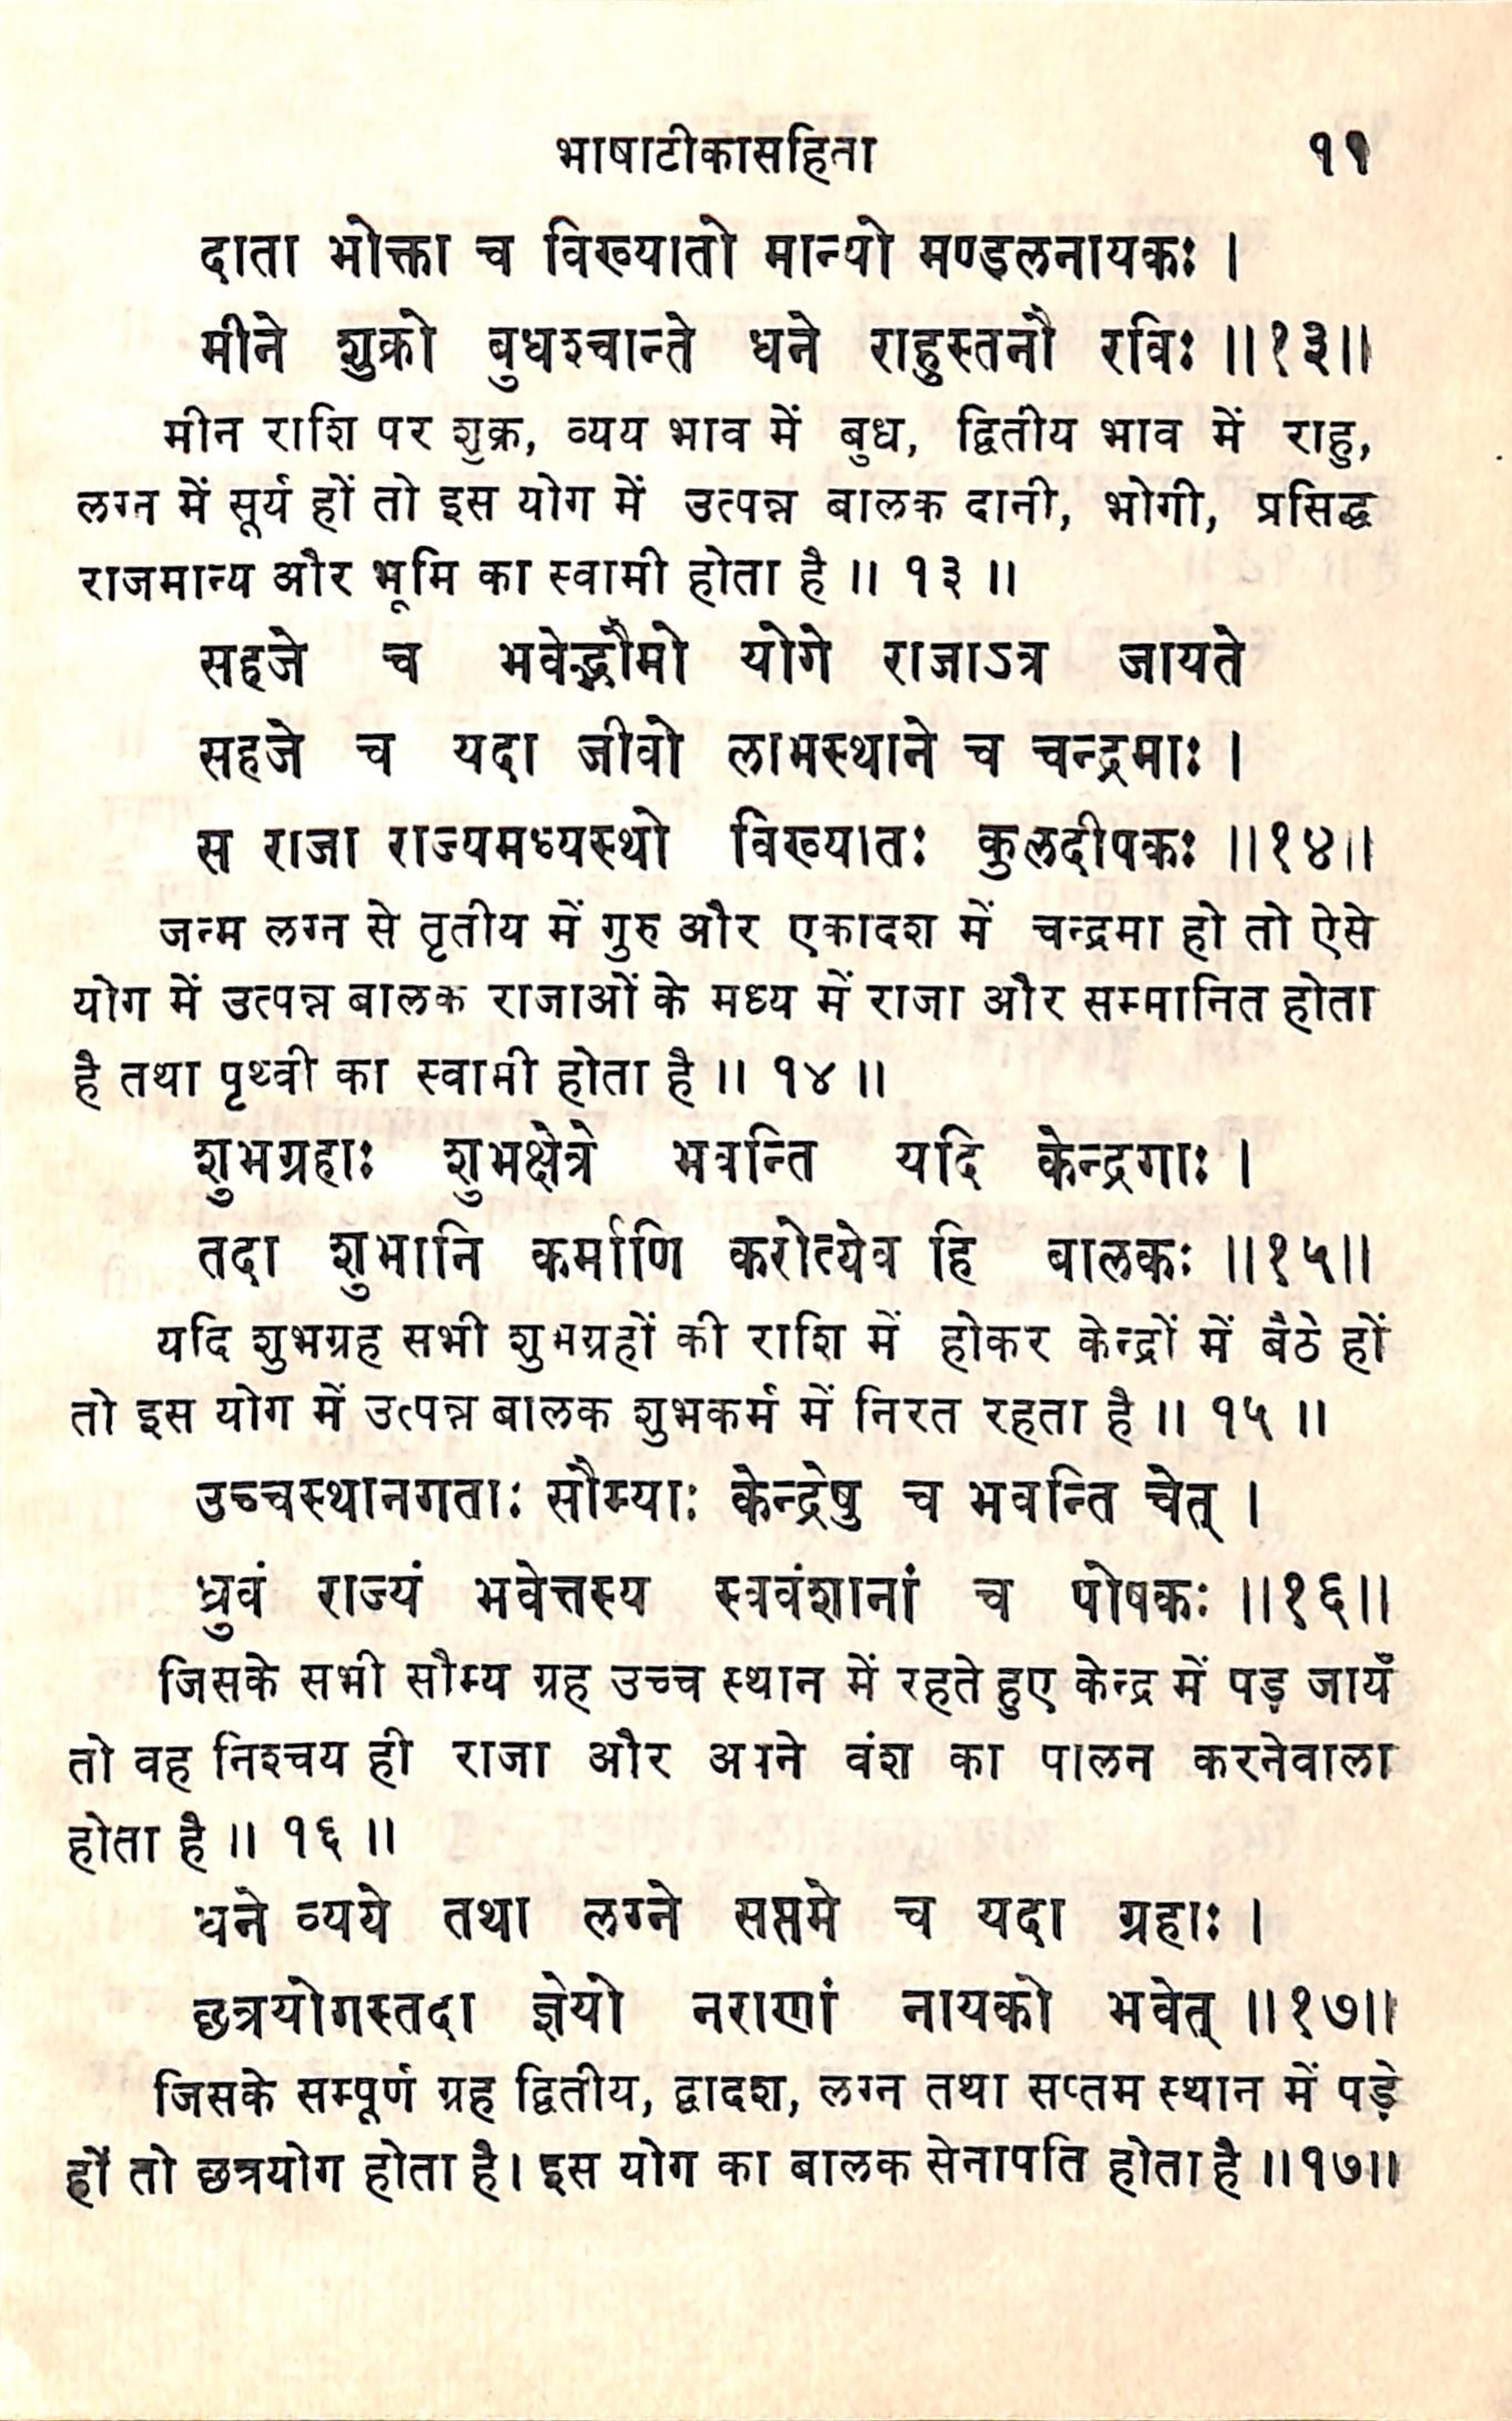 भाषाटीकासहिता ११
दाता भोक्ता च विख्यातो मान्यो मण्डलनायकः ।
मीने शुक्रो बुधश्चान्ते धने राहुस्तनौ रविः ॥१३॥
मीन राशि पर शुक्र, व्यय भाव में बुध, द्वितीय भाव में राहु,
लग्न में सूर्य हों तो इस योग में उत्पन्न बालक दानी, भोगी, प्रसिद्ध
राजमान्य और भूमि का स्वामी होता है ॥ १३ ॥
सहजे च भवेद्भौमो योगे राजाऽत्र जायते
सहजे च यदा जीवो लाभस्थाने च चन्द्रमाः ।
स राजा राज्यमध्यस्थो विख्यातः कुलदीपकः ॥१४॥
जन्म लग्न से तृतीय में गुरु और एकादश में चन्द्रमा हो तो ऐसे
योग में उत्पन्न बालक राजाओं के मध्य में राजा और सम्मानित होता
है तथा पृथ्वी का स्वामी होता है ॥ १४ ॥
शुभग्रहाः शुभक्षेत्रे भवन्ति यदि केन्द्रगाः ।
तदा शुभानि कर्माणि करोत्येव हि बालकः ॥१५॥
यदि शुभग्रह सभी शुभग्रहों की राशि में होकर केन्द्रों में बैठे हों
तो इस योग में उत्पन्न बालक शुभकर्म में निरत रहता है ॥ १५ ॥
उच्चस्थानगताः सौम्याः केन्द्रेषु च भवन्ति चेत् ।
ध्रुवं राज्यं भवेत्तस्य स्ववंशानां च पोषकः ॥१६॥
जिसके सभी सौम्य ग्रह उच्च स्थान में रहते हुए केन्द्र में पड़ जायँ
तो वह निश्चय ही राजा और अपने वंश का पालन करनेवाला
होता है ॥ १६ ॥
धने व्यये तथा लग्ने सप्तमे च यदा ग्रहाः ।
छत्रयोगस्तदा ज्ञेयो नराणां नायको भवेत् ॥१७॥
जिसके सम्पूर्ण ग्रह द्वितीय, द्वादश, लग्न तथा सप्तम स्थान में पड़े
हों तो छत्रयोग होता है। इस योग का बालक सेनापति होता है ॥१७॥